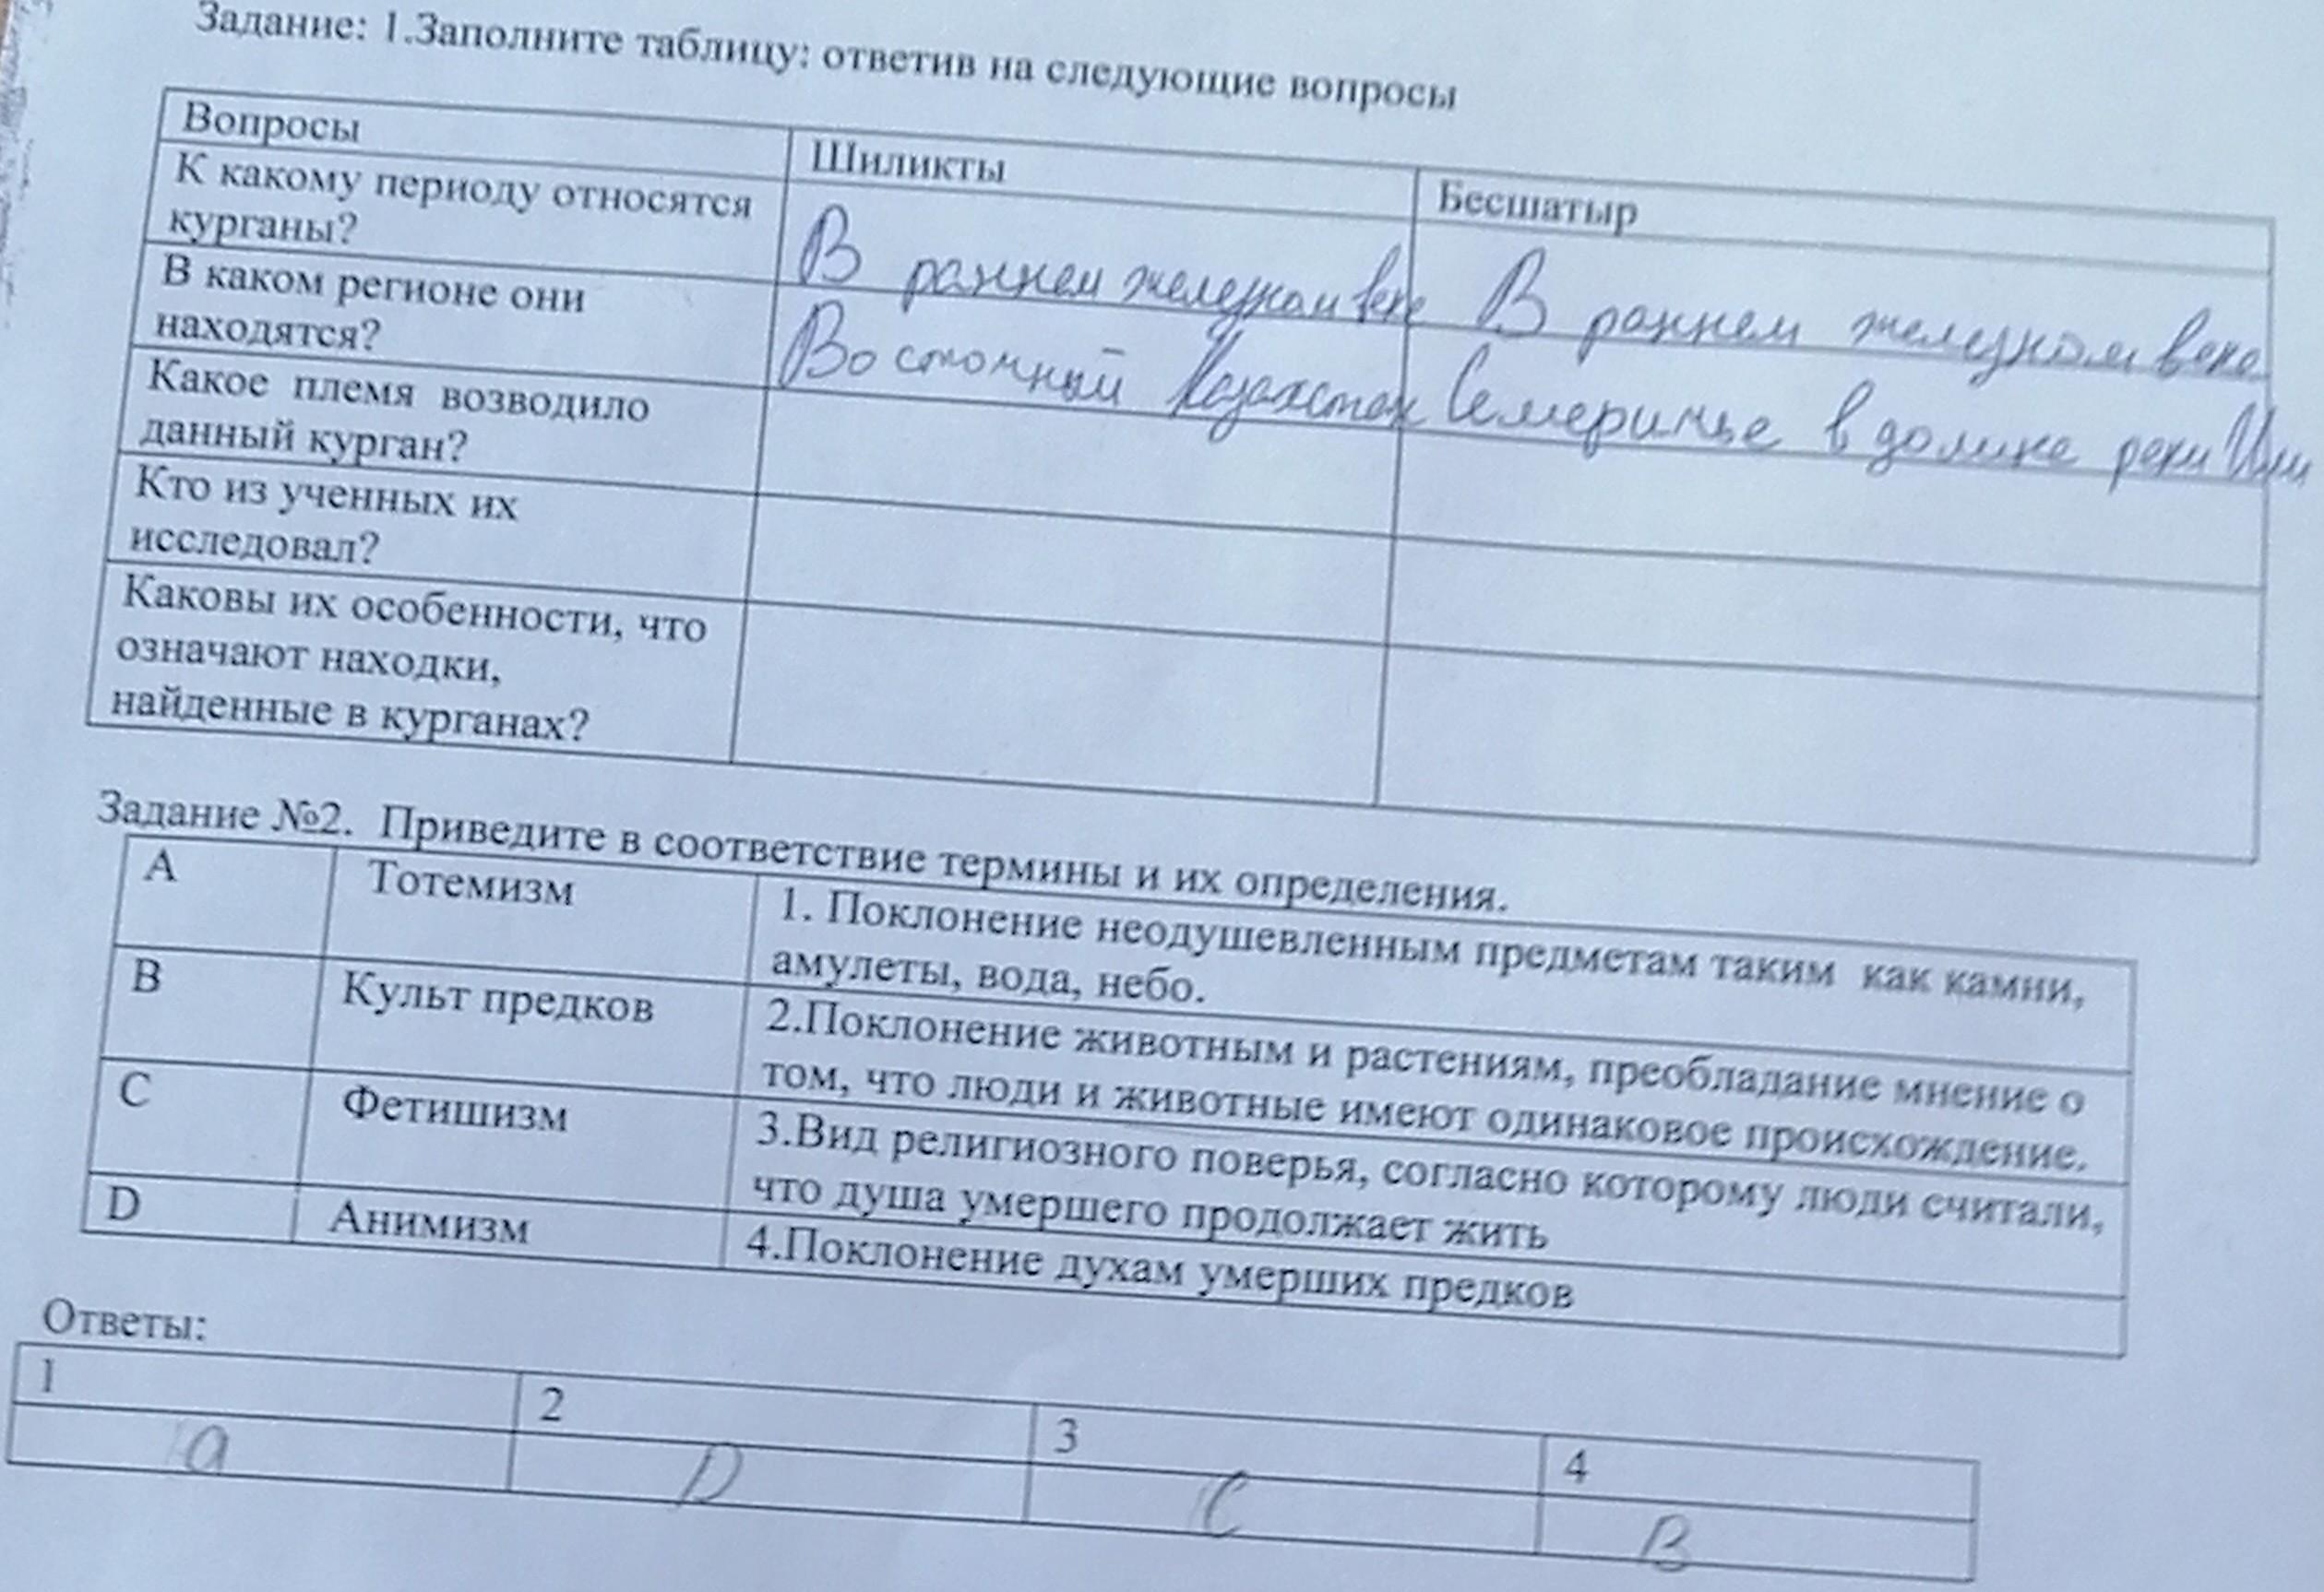 Задание: 1.Заполните таблицу: ответив на следующие вопросы
Вопросы
Шиликты
Бесшатыр
К какому периоду относятся
курганы?
В раннем железном веке
В раннем железном веке
В каком регионе они
находятся?
Восточный Казахстан
Семеричье в долине реки Или
Какое племя возводило
данный курган?
Кто из ученных их
исследовал?
Каковы их особенности, что
означают находки,
найденные в курганах?
Задание №2. Приведите в соответствие термины и их определения.
A
Тотемизм
1. Поклонение неодушевленным предметам таким как камни,
амулеты, вода, небо.
B
Культ предков
2.Поклонение животным и растениям, преобладание мнение о
том, что люди и животные имеют одинаковое происхождение.
C
Фетишизм
3.Вид религиозного поверья, согласно которому люди считали,
что душа умершего продолжает жить
D
Анимизм
4.Поклонение духам умерших предков
Ответы:
1
2
3
4
a
D
C
B